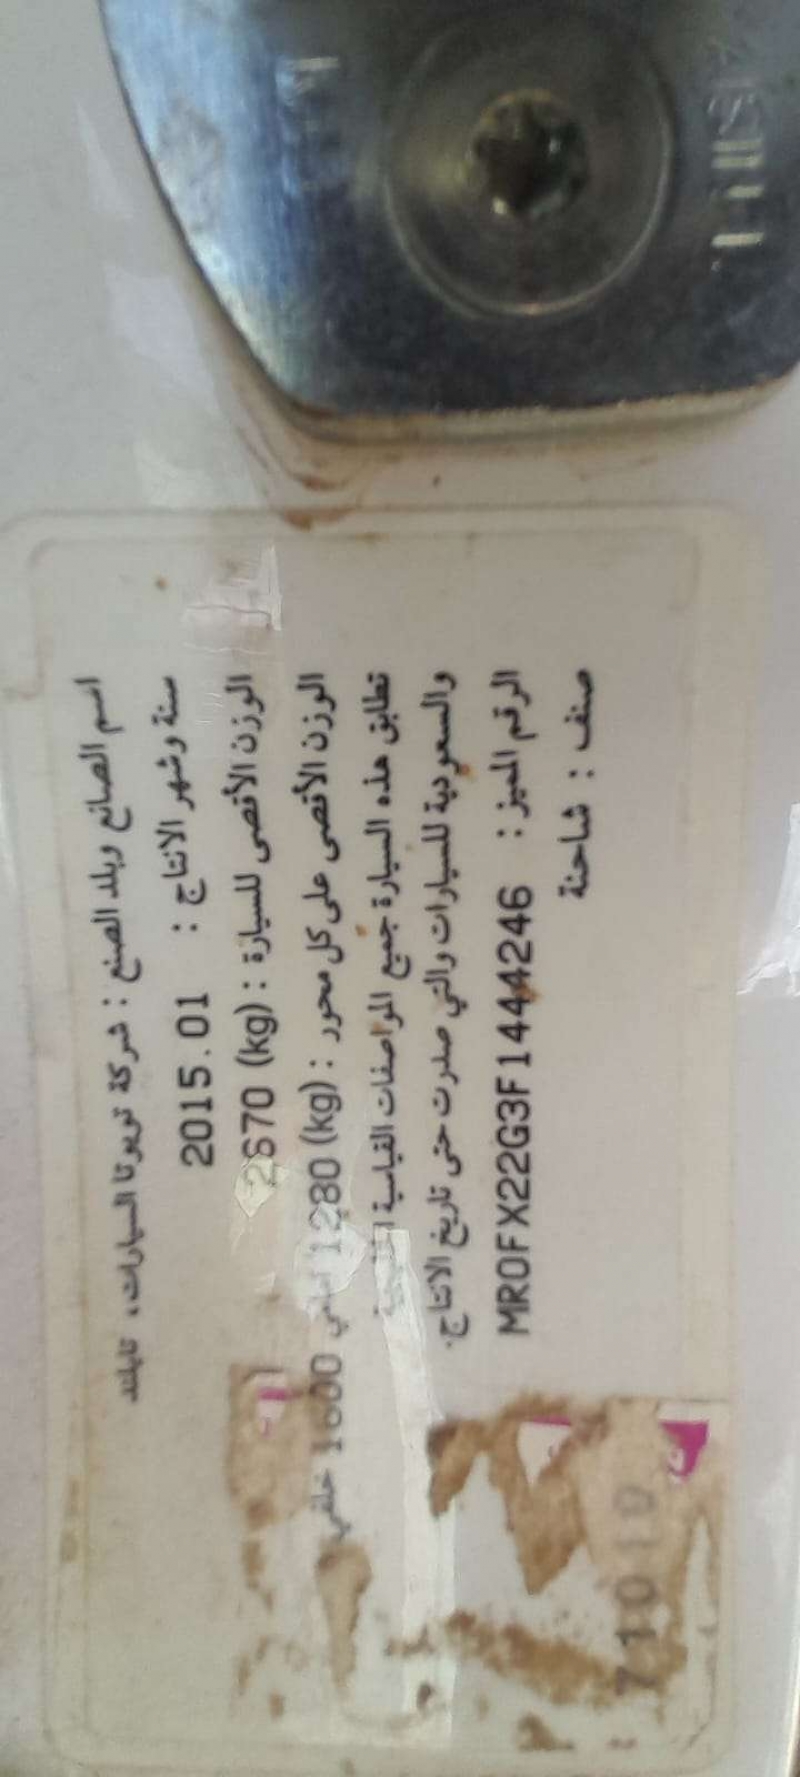 اسم الصانع وبلد الصنع : شركة تويوتا للسيارات، تايلند
سنة وشهر الانتاج : 2015.01
الوزن الأقصى للسيارة : (kg) 2670
الوزن الأقصى على كل محور : (kg) 1280 امامي 1600 خلفي
تطابق هذه السيارة جميع المواصفات القياسية
والسعودية للسيارات والتي صدرت حتى تاريخ الانتاج.
الرقم المميز : MR0FX22G3F1444246
صنف : شاحنة